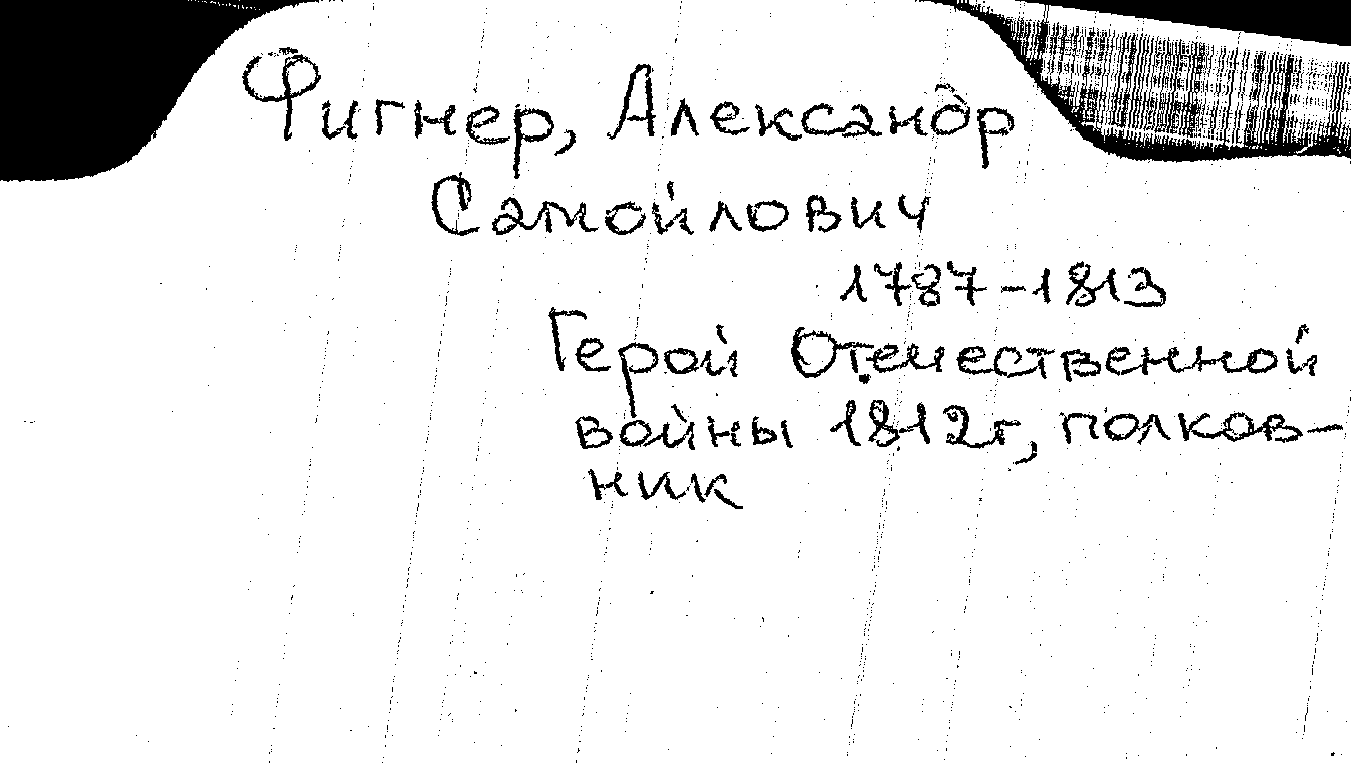 Фигнер, Александр
Самойлович
1787-1813
Герой Отечественной
войны 1812г, полков-
ник